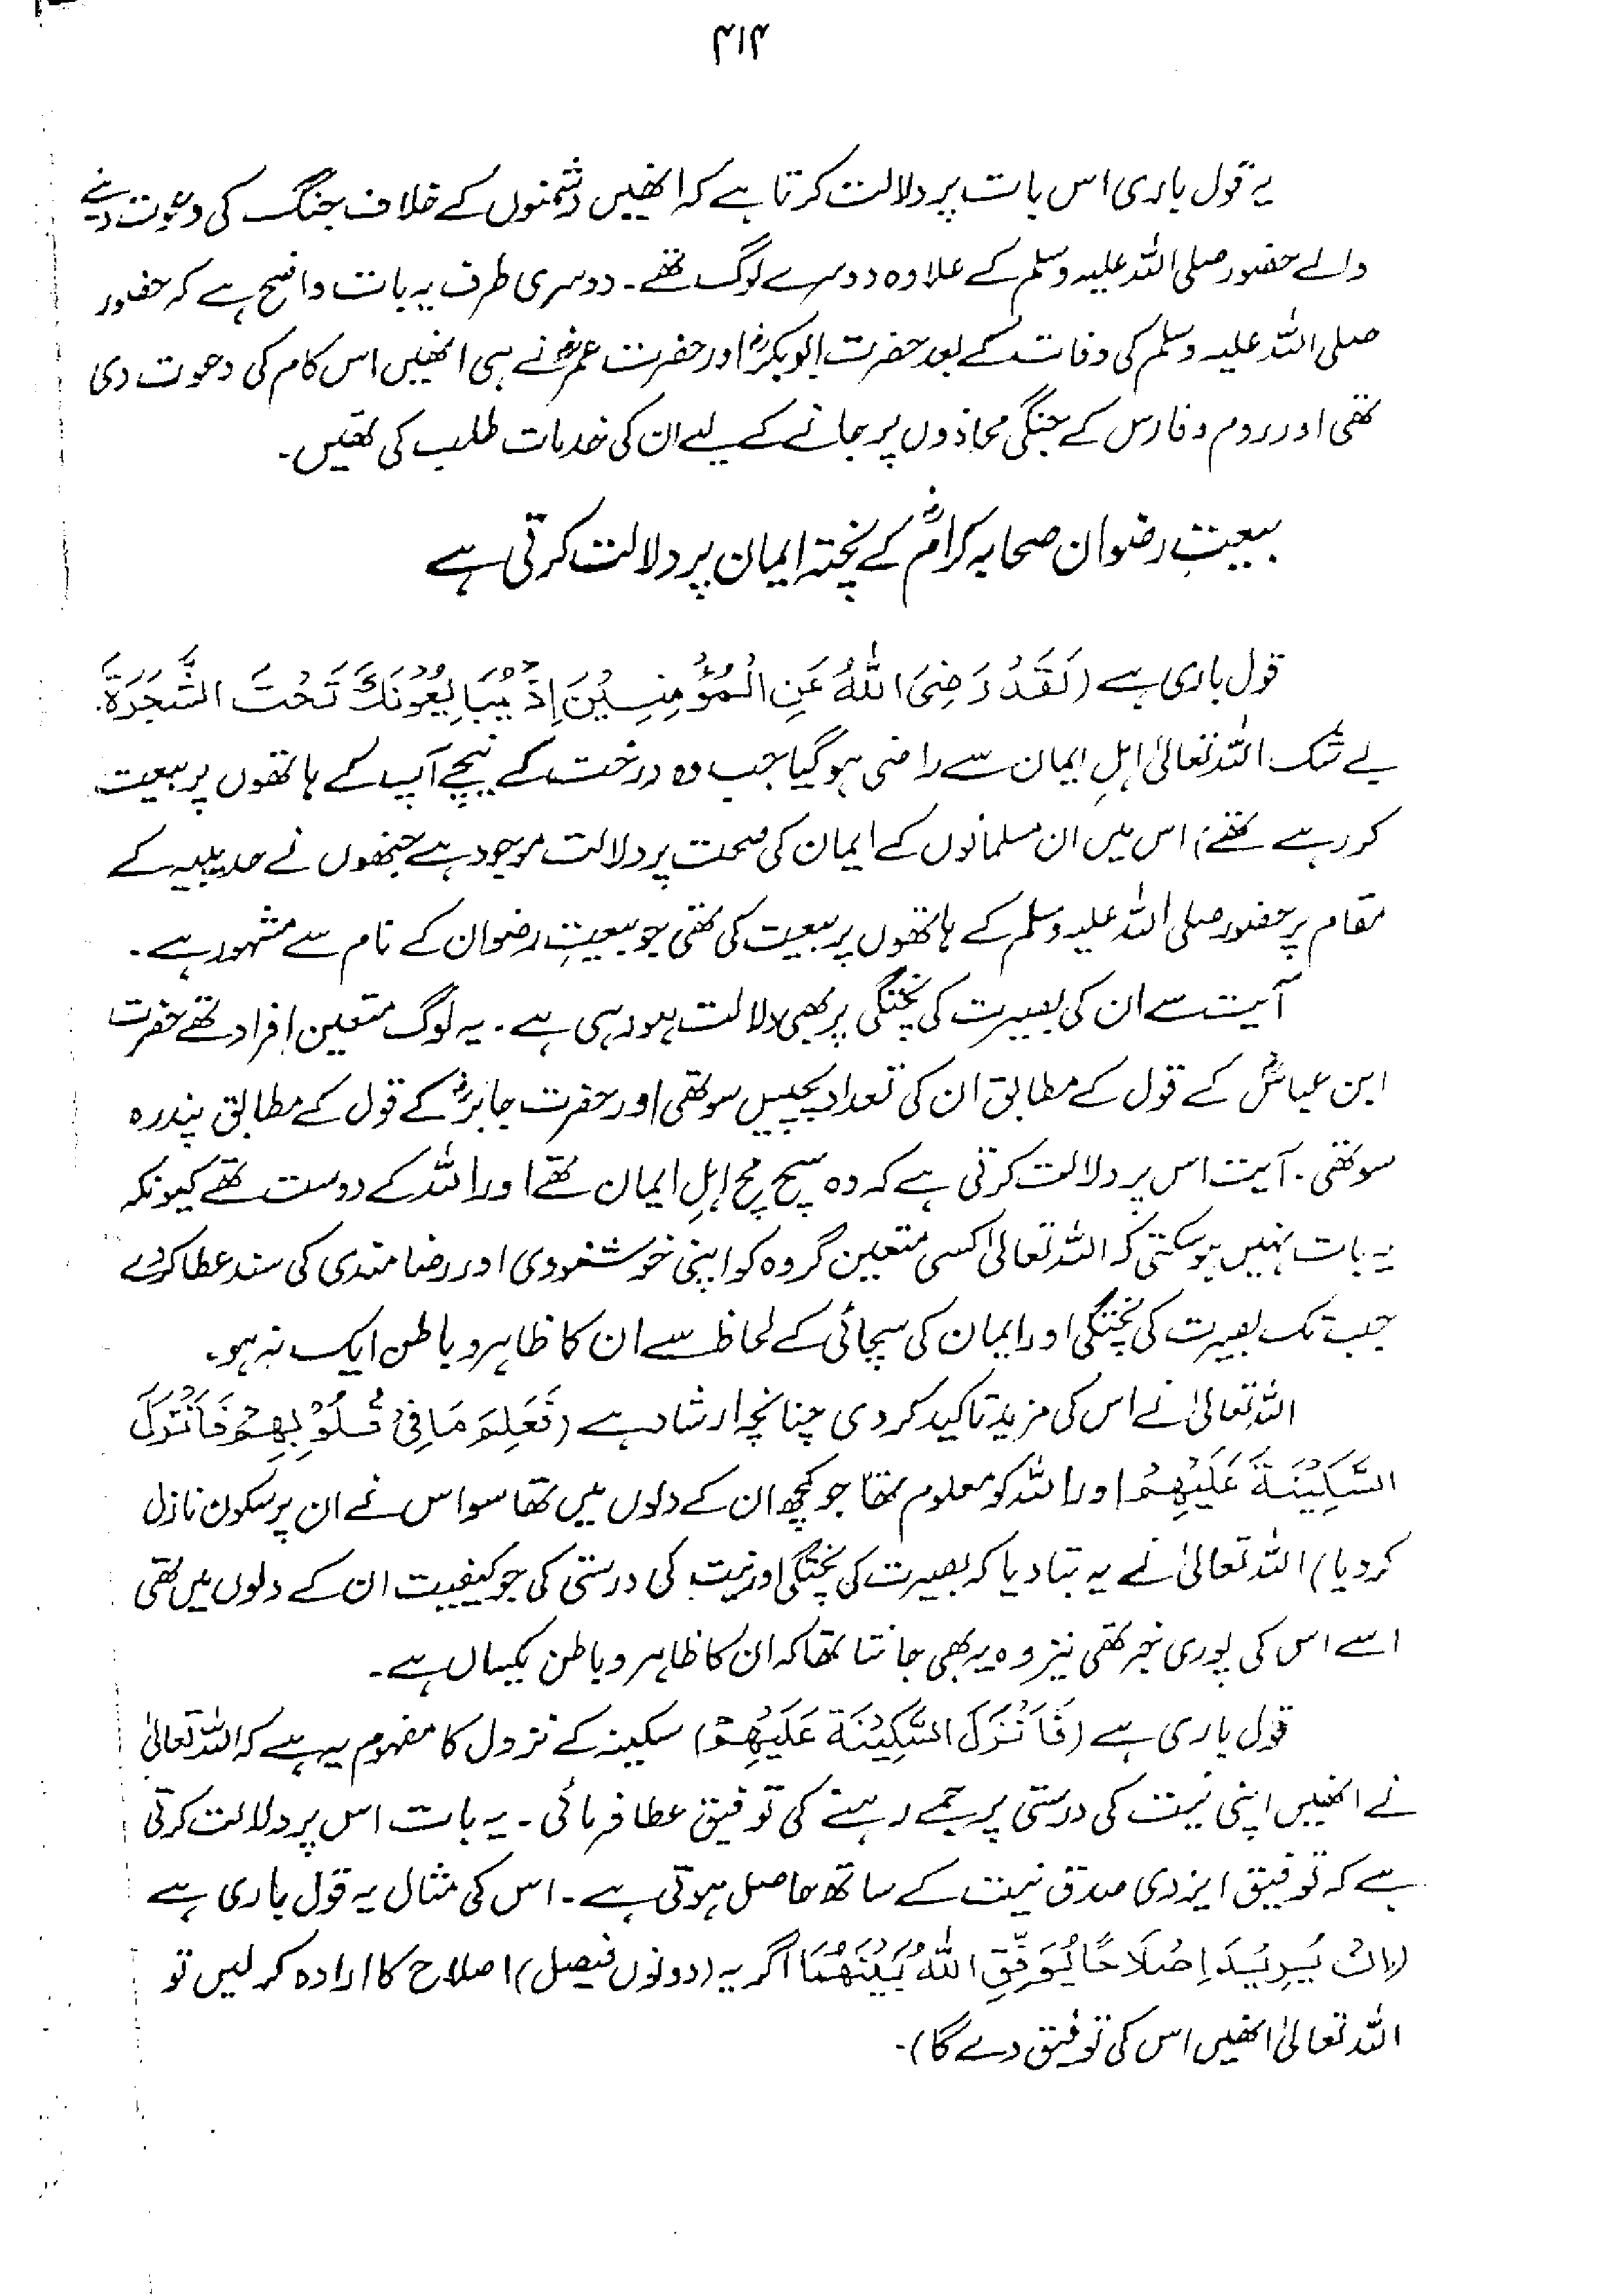 ۴۱۴
یہ قول باری اس بات پر دلالت کرتا ہے کہ انھیں دشمنوں کے خلاف جنگ کی دعوت دینے
والے حضور صلی اللہ علیہ وسلم کے علاوہ دوسرے لوگ تھے۔ دوسری طرف یہ بات واضح ہے کہ حضور
صلی اللہ علیہ وسلم کی وفات کے بعد حضرت ابوبکرؓ اور حضرت عمرؓ نے ہی انھیں اس کام کی دعوت دی
تھی اور روم و فارس کے جنگی محاذوں پر جانے کے لیے ان کی خدمات طلب کی تھیں۔
بیعتِ رضوان صحابہ کرامؓ کے پختہ ایمان پر دلالت کرتی ہے
قول باری ہے (لَقَدْ رَضِیَ اللّٰهُ عَنِ الْمُؤْمِنِیْنَ اِذْ یُبَایِعُوْنَكَ تَحْتَ الشَّجَرَةِ۔
بے شک اللہ تعالیٰ اہلِ ایمان سے راضی ہوگیا جب وہ درخت کے نیچے آپ کے ہاتھوں پر بیعت
کر رہے تھے) اس میں ان مسلمانوں کے ایمان کی صحت پر دلالت موجود ہے جنھوں نے حدیبیہ کے
مقام پر حضور صلی اللہ علیہ وسلم کے ہاتھوں پر بیعت کی تھی جو بیعتِ رضوان کے نام سے مشہور ہے۔
آیت سے ان کی بصیرت کی پختگی پر بھی دلالت ہو رہی ہے۔ یہ لوگ متعین افراد تھے حضرت
ابن عباسؓ کے قول کے مطابق ان کی تعداد پچیس سو تھی اور حضرت جابرؓ کے قول کے مطابق پندرہ
سو تھی۔ آیت اس پر دلالت کرتی ہے کہ وہ سچ مچ اہلِ ایمان تھے اور اللہ کے دوست تھے کیونکہ
یہ بات نہیں ہوسکتی کہ اللہ تعالیٰ کسی متعین گروہ کو اپنی خوشنودی اور رضامندی کی سند عطا کردے
جب تک بصیرت کی پختگی اور ایمان کی سچائی کے لحاظ سے ان کا ظاہر و باطن ایک نہ ہو۔
اللہ تعالیٰ نے اس کی مزید تاکید کردی چنانچہ ارشاد ہے (فَعَلِمَ مَا فِیْ قُلُوْبِهِمْ فَاَنْزَلَ
السَّكِیْنَةَ عَلَیْهِمْ اور اللہ کو معلوم تھا جو کچھ ان کے دلوں میں تھا سو اس نے ان پر سکون نازل
کردیا) اللہ تعالیٰ نے یہ بتا دیا کہ بصیرت کی پختگی اور نیت کی درستی کی جو کیفیت ان کے دلوں میں تھی
اسے اس کی پوری خبر تھی نیز وہ یہ بھی جانتا تھا کہ ان کا ظاہر و باطن یکساں ہے۔
قول باری ہے (فَاَنْزَلَ السَّكِیْنَةَ عَلَیْهِمْ) سکینہ کے نزول کا مفہوم یہ ہے کہ اللہ تعالیٰ
نے انھیں اپنی نیت کی درستی پر جمے رہنے کی توفیق عطا فرمائی۔ یہ بات اس پر دلالت کرتی
ہے کہ توفیق ایزدی صدق نیت کے ساتھ حاصل ہوتی ہے۔ اس کی مثال یہ قول باری ہے
(اِنْ یُّرِیْدَا اِصْلَاحًا یُّوَفِّقِ اللّٰهُ بَیْنَهُمَا اگر یہ (دونوں فیصل) اصلاح کا ارادہ کرلیں تو
اللہ تعالیٰ انھیں اس کی توفیق دے گا)۔